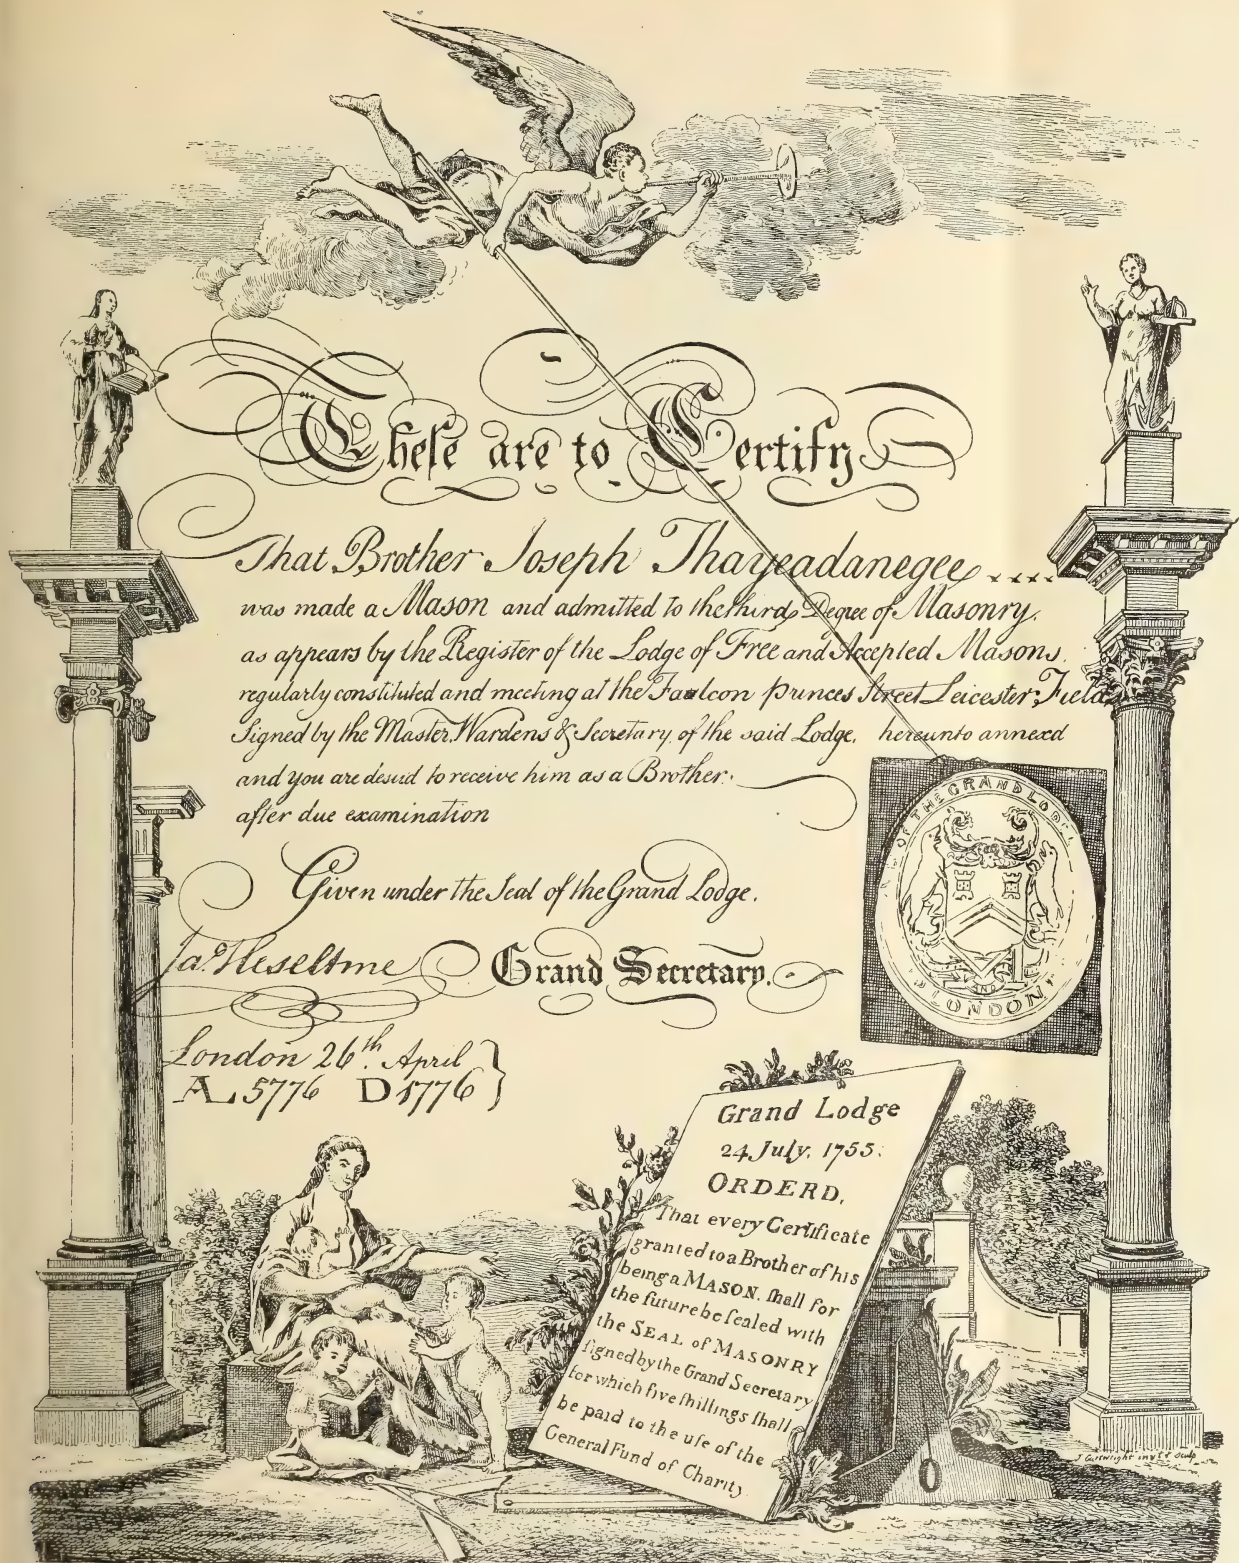 Theſe are to Certify
That Brother Joseph Thayeadanegee
was made a Mason and admitted to the third Degree of Masonry,
as appears by the Register of the Lodge of Free and Accepted Masons,
regularly constituted and meeting at the Faulcon princes Street Leicester Field
Signed by the Master, Wardens & Secretary, of the said Lodge, hereunto annexed
and you are desird to receive him as a Brother.
after due examination
Given under the Seal of the Grand Lodge.
Jas. Heseltine Grand Secretary.
OF THE GRAND LODGE
LONDON
London 26th. April
A L 5776 D 1776
Grand Lodge
24 July, 1755.
ORDERD,
That every Certificate
granted to a Brother of his
being a MASON, ſhall for
the future be ſealed with
the SEAL of MASONRY
ſigned by the Grand Secretary
for which five ſhillings ſhall
be paid to the uſe of the
General Fund of Charity.
J Cartwright